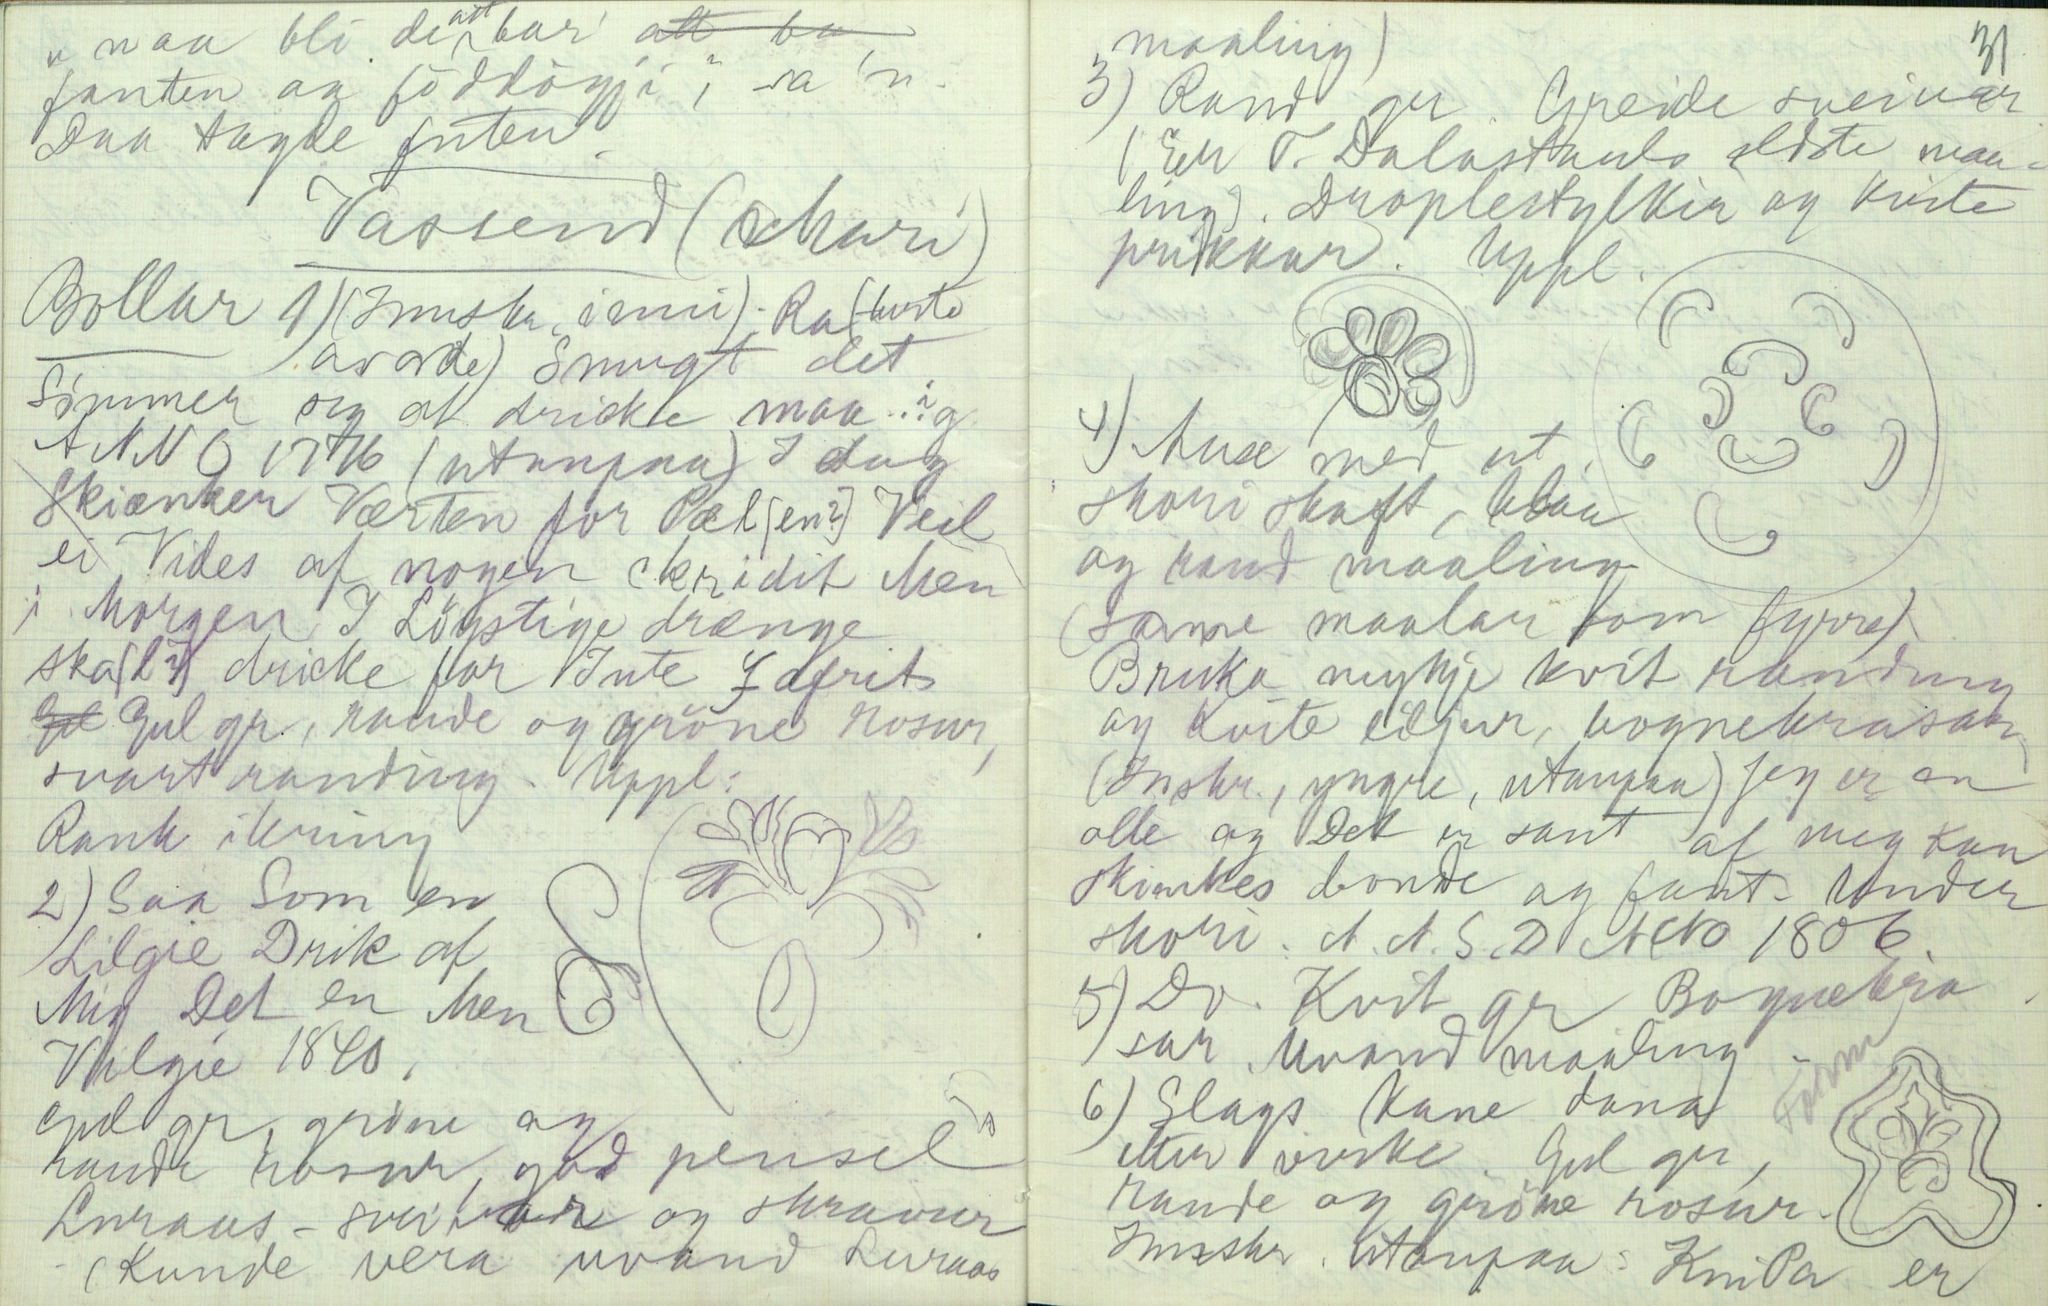 "maa bli de att bari att ba
fanten aa föddögji", sa 'n.
Daa tagde futen.
Vassend (skori)
Bollar 1) (Innskr. inni). Ra (borte
av orde) Smugt det
Sömmer sig at dricke maa..ig
ANNO 1776 (utanpaa) I dag
Skiænker Værten for Pæl[en?] Veil
ei Vides af nogen Kridit Men
i Morgen I Lögstige drænge
ska[l?] dricke for Inte
Gul gr, raude og gröne rosur,
svart randing. Uppl:
Rank ikring
2) Saa Som en
Lilgie Drik af
Mig Det en Men
Vilgie 1840.
Gul gr, gröne og
raude rosur, god pensel
Luraas-sveivar og skravur
(Kunde vera uvand Luraas
31
maaling)
3) Raud gr. Greide sveivar
(Eit T. Dalastauls eldste maa-
ling). Droplestylkir og kvite
prikkar. Uppl.
4) Ause med ut
skori skaft, blaa
og raud maaling
(same maalar som fyrre).
Bruka mykje kvit randing
og kvite liljur, bognekrasar
(Inskr., yngre, utanpaa) Jeg er en
olle og Det er sant af meg kan
skienkes bonde og fant. Under
skori: A. A. S. D 1806.
5) Do. Kvit gr Bognekra
sar. Uvand maaling.
6) Slags Kane dana
etter virke. Gul gr,
Form
raude og gröne rosur.
Innskr. utanpaa: KniPa er